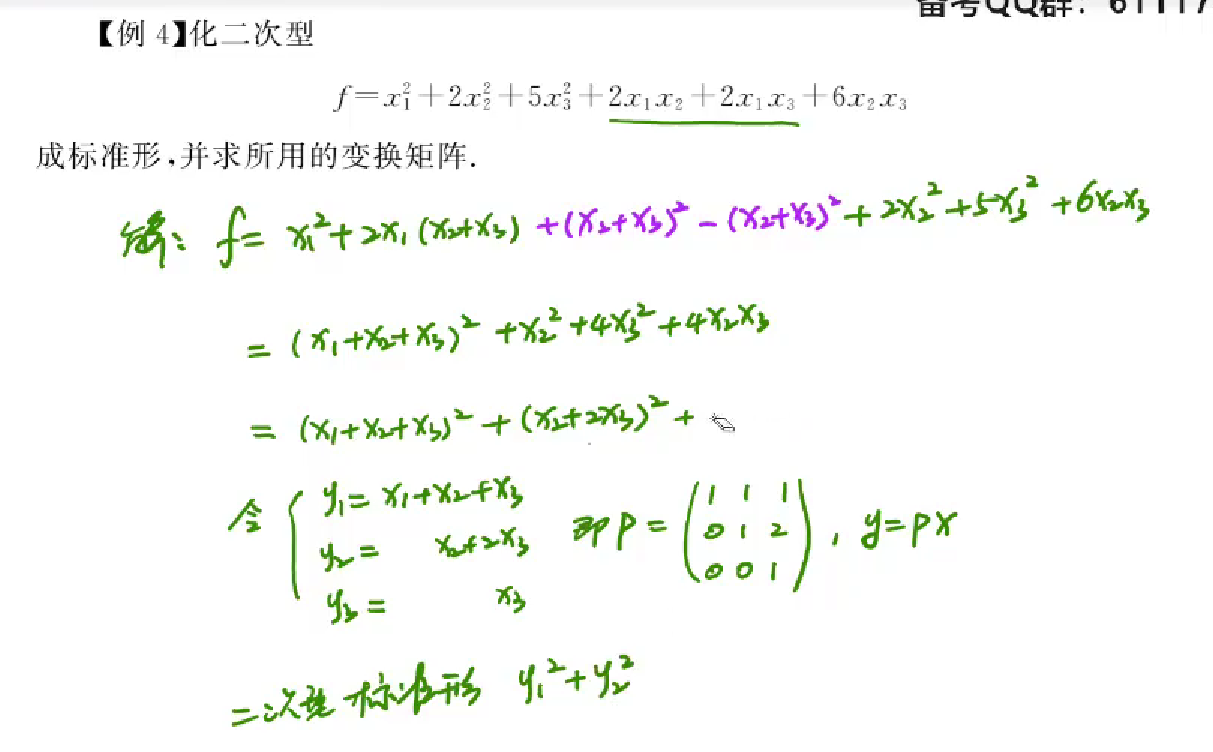 备考QQ群：61117
【例 4】化二次型
f=x₁²+2x₂²+5x₃²+2x₁x₂+2x₁x₃+6x₂x₃
成标准形,并求所用的变换矩阵.
解: f= x₁²+2x₁(x₂+x₃)+(x₂+x₃)²-(x₂+x₃)²+2x₂²+5x₃²+6x₂x₃
= (x₁+x₂+x₃)²+x₂²+4x₃²+4x₂x₃
= (x₁+x₂+x₃)²+(x₂+2x₃)²+
令 { y₁= x₁+x₂+x₃
y₂= x₂+2x₃
y₃= x₃
即P= (1 1 1
0 1 2
0 0 1), y=PX
二次型标准形 y₁²+y₂²